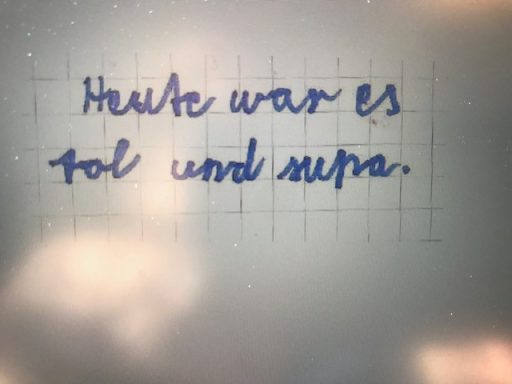 Heute war es
tol und supa.